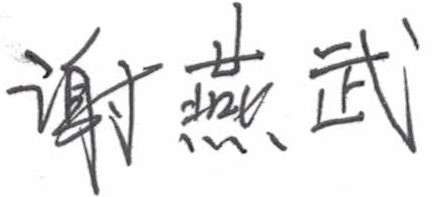 谢燕武